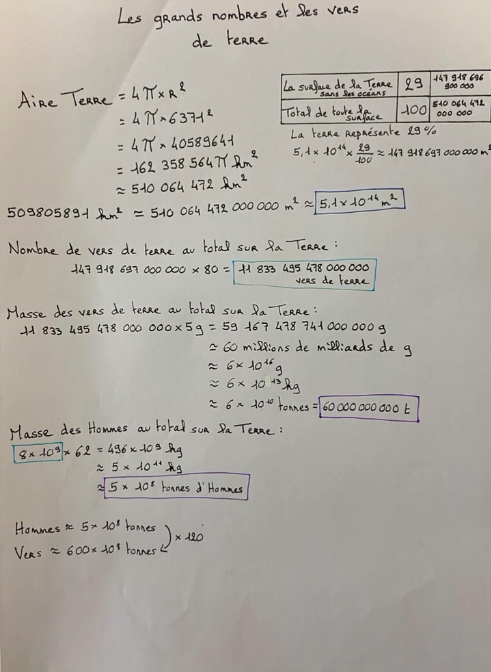 Les grands nombres et les vers
de terre
Aire Terre = 4π×R²
= 4π×6371²
= 4π×40589641
= 162 358 564π km²
≈ 510 064 472 km²
La surface de la Terre sans les océans 29 147 918 696 900 000
Total de toute la surface 100 510 064 472 000 000
La terre représente 29 %
5,1 × 10¹⁴ × 29/100 ≈ 147 918 697 000 000 m²
509805891 km² ≈ 510 064 472 000 000 m² ≈ 5,1 × 10¹⁴ m²
Nombre de vers de terre au total sur la Terre :
147 918 697 000 000 × 80 = 11 833 495 478 000 000
vers de terre
Masse des vers de terre au total sur la Terre :
11 833 495 478 000 000 × 5g = 59 167 478 741 000 000 g
≈ 60 millions de milliards de g
≈ 6 × 10¹⁶ g
≈ 6 × 10¹³ kg
≈ 6 × 10¹⁰ tonnes = 60 000 000 000 t
Masse des Hommes au total sur la Terre :
8 × 10⁹ × 62 = 496 × 10⁹ kg
≈ 5 × 10¹¹ kg
≈ 5 × 10⁸ tonnes d'Hommes
Hommes ≈ 5 × 10⁸ tonnes
Vers ≈ 600 × 10⁸ tonnes
× 120